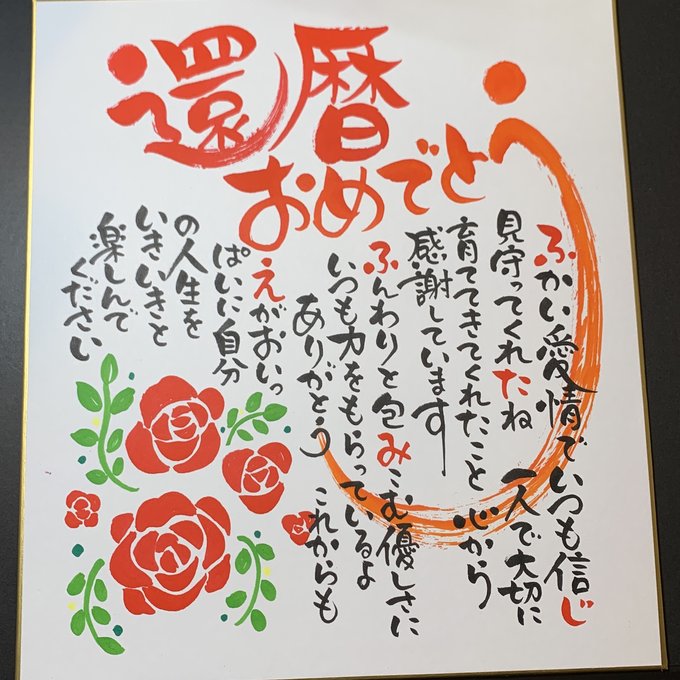 還暦
おめでとう
ふかい愛情でいつも信じ
見守ってくれたね 一人で大切に
育ててきてくれたこと 心から
感謝しています
ふんわりと包みこむ優しさに
いつも力をもらっているよ
ありがとう これからも
えがおいっ
ぱいに自分
の人生を
いきいきと
楽しんで
ください